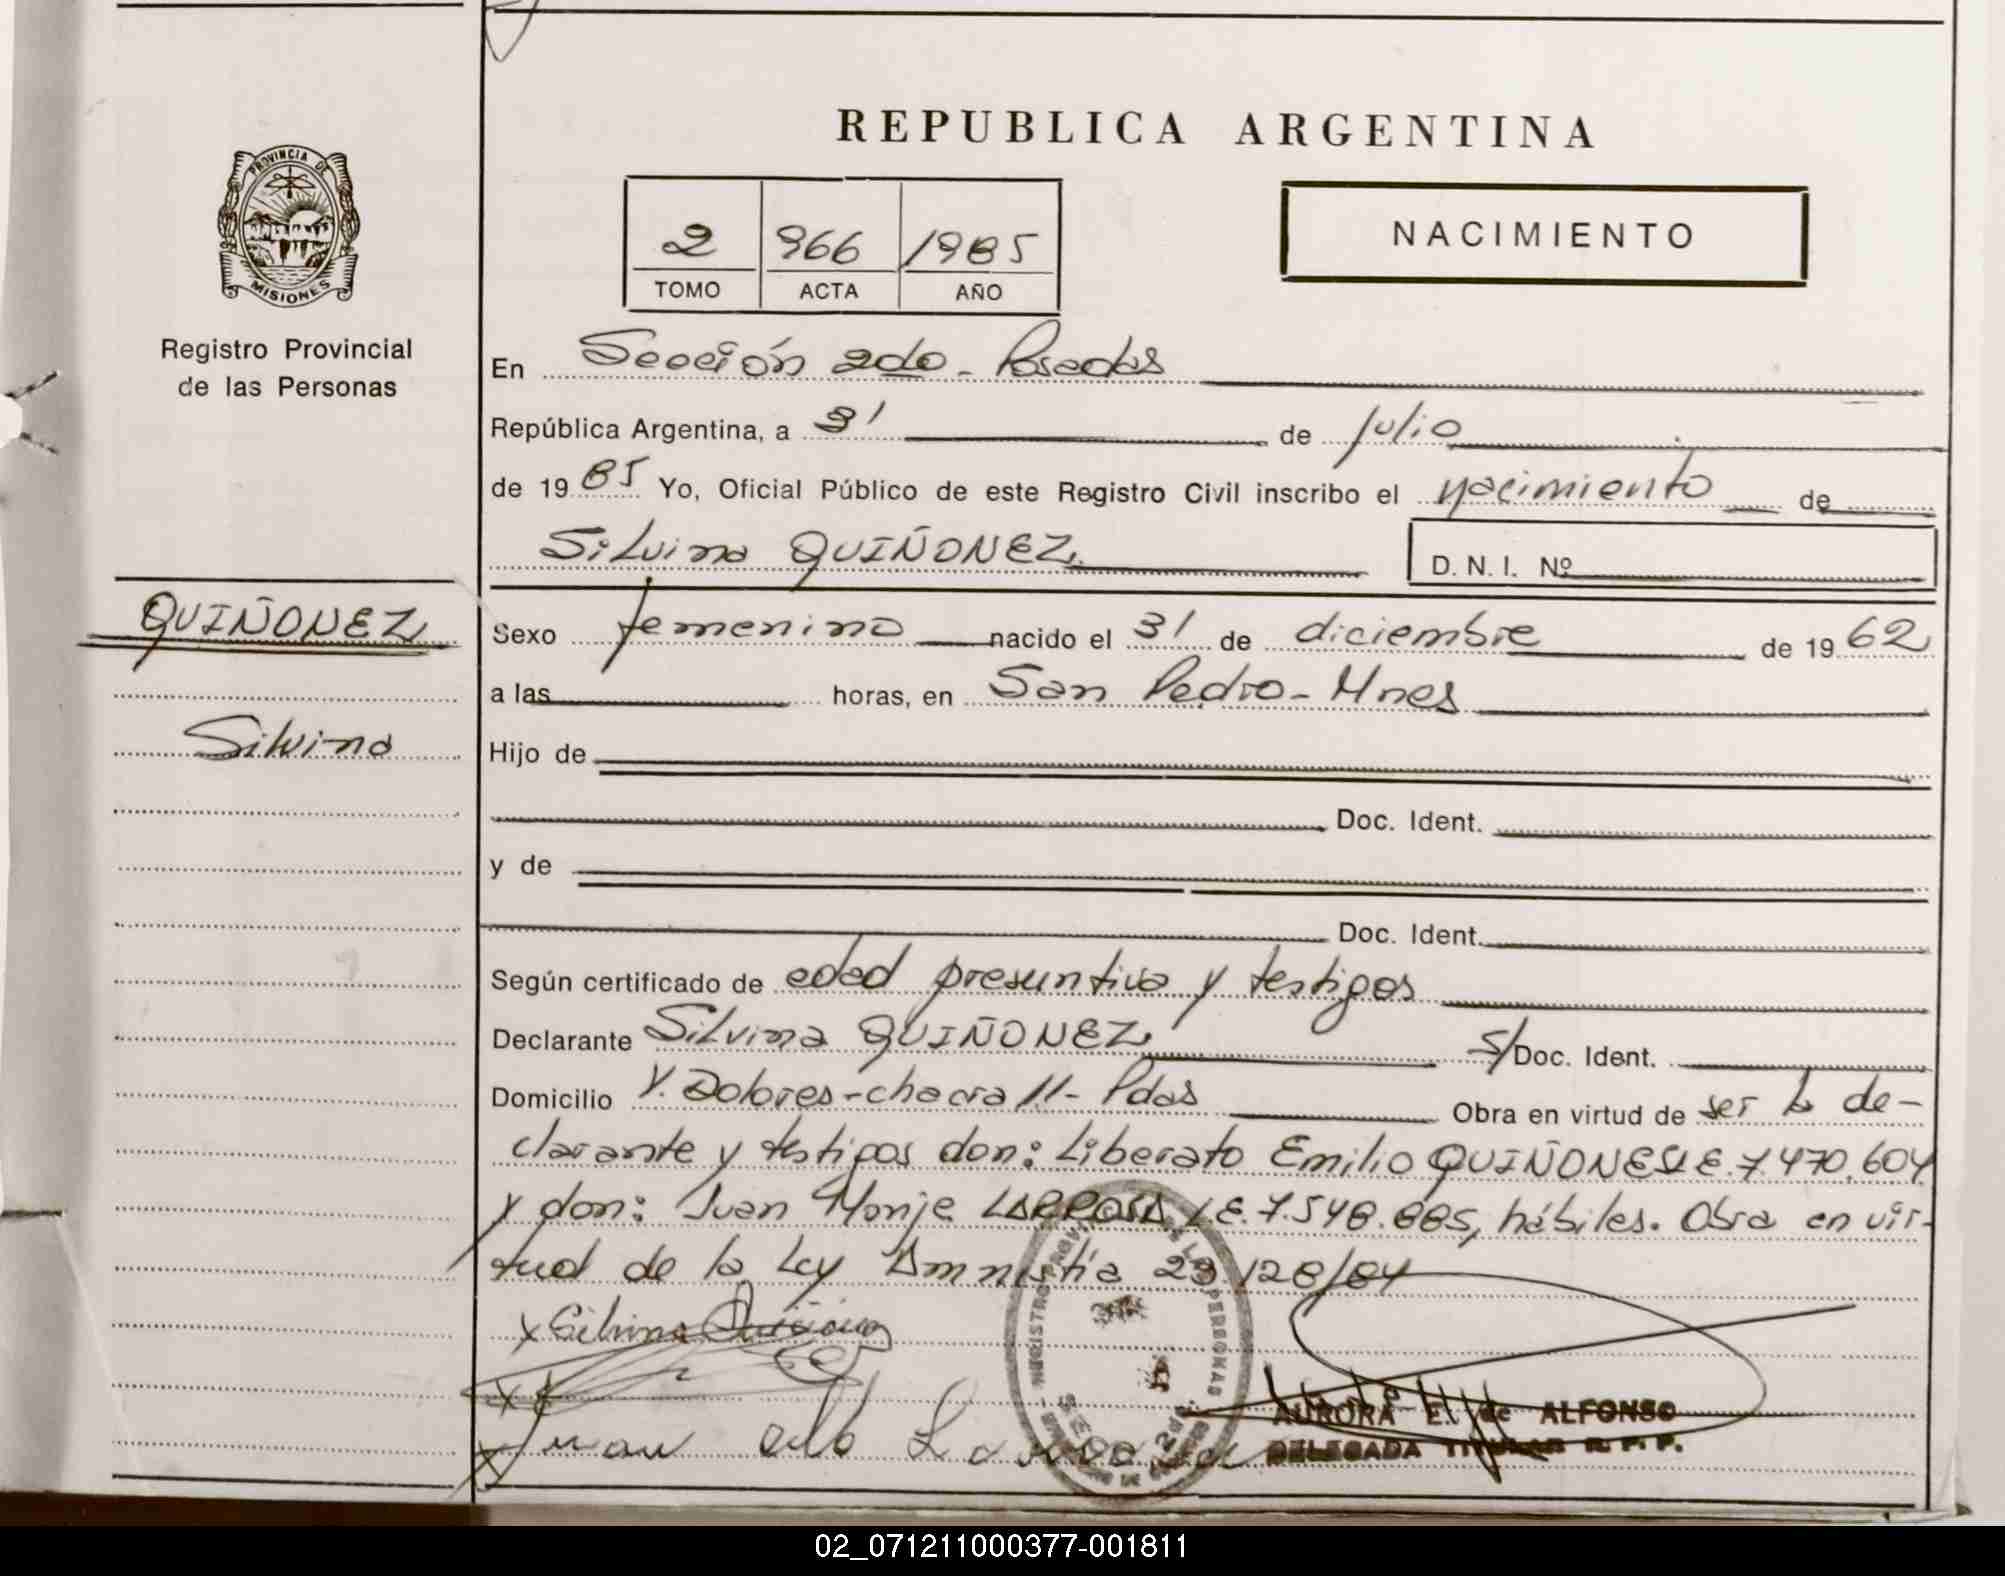 REPUBLICA ARGENTINA
PROVINCIA DE
MISIONES
Registro Provincial
de las Personas
2 966 1985
TOMO ACTA AÑO
NACIMIENTO
En Sección 2do - Posadas
República Argentina, a 31 de julio
de 1985 Yo, Oficial Público de este Registro Civil inscribo el nacimiento de
Silvina QUIÑONEZ
D. N. I. Nº
QUIÑONEZ
Silvina
Sexo femenino nacido el 31 de diciembre de 1962
a las horas, en San Pedro - Mnes
Hijo de
Doc. Ident.
y de
Doc. Ident.
Según certificado de edad presuntiva y testigos
Declarante Silvina QUIÑONEZ S/Doc. Ident.
Domicilio V. Dolores - chacra 11 - Pdas Obra en virtud de ser la de-
clarante y testigos don: Liberato Emilio QUIÑONES L.E. 7.470.604
y don: Juan Monje LARROSA L.E. 7.548.885, hábiles. Obra en vir-
tud de la Ley Amnistía 23.128/84
x Silvina
x
x Juan
AURORA E. de ALFONSO
DELEGADA TITULAR R. P. P.
02_071211000377-001811